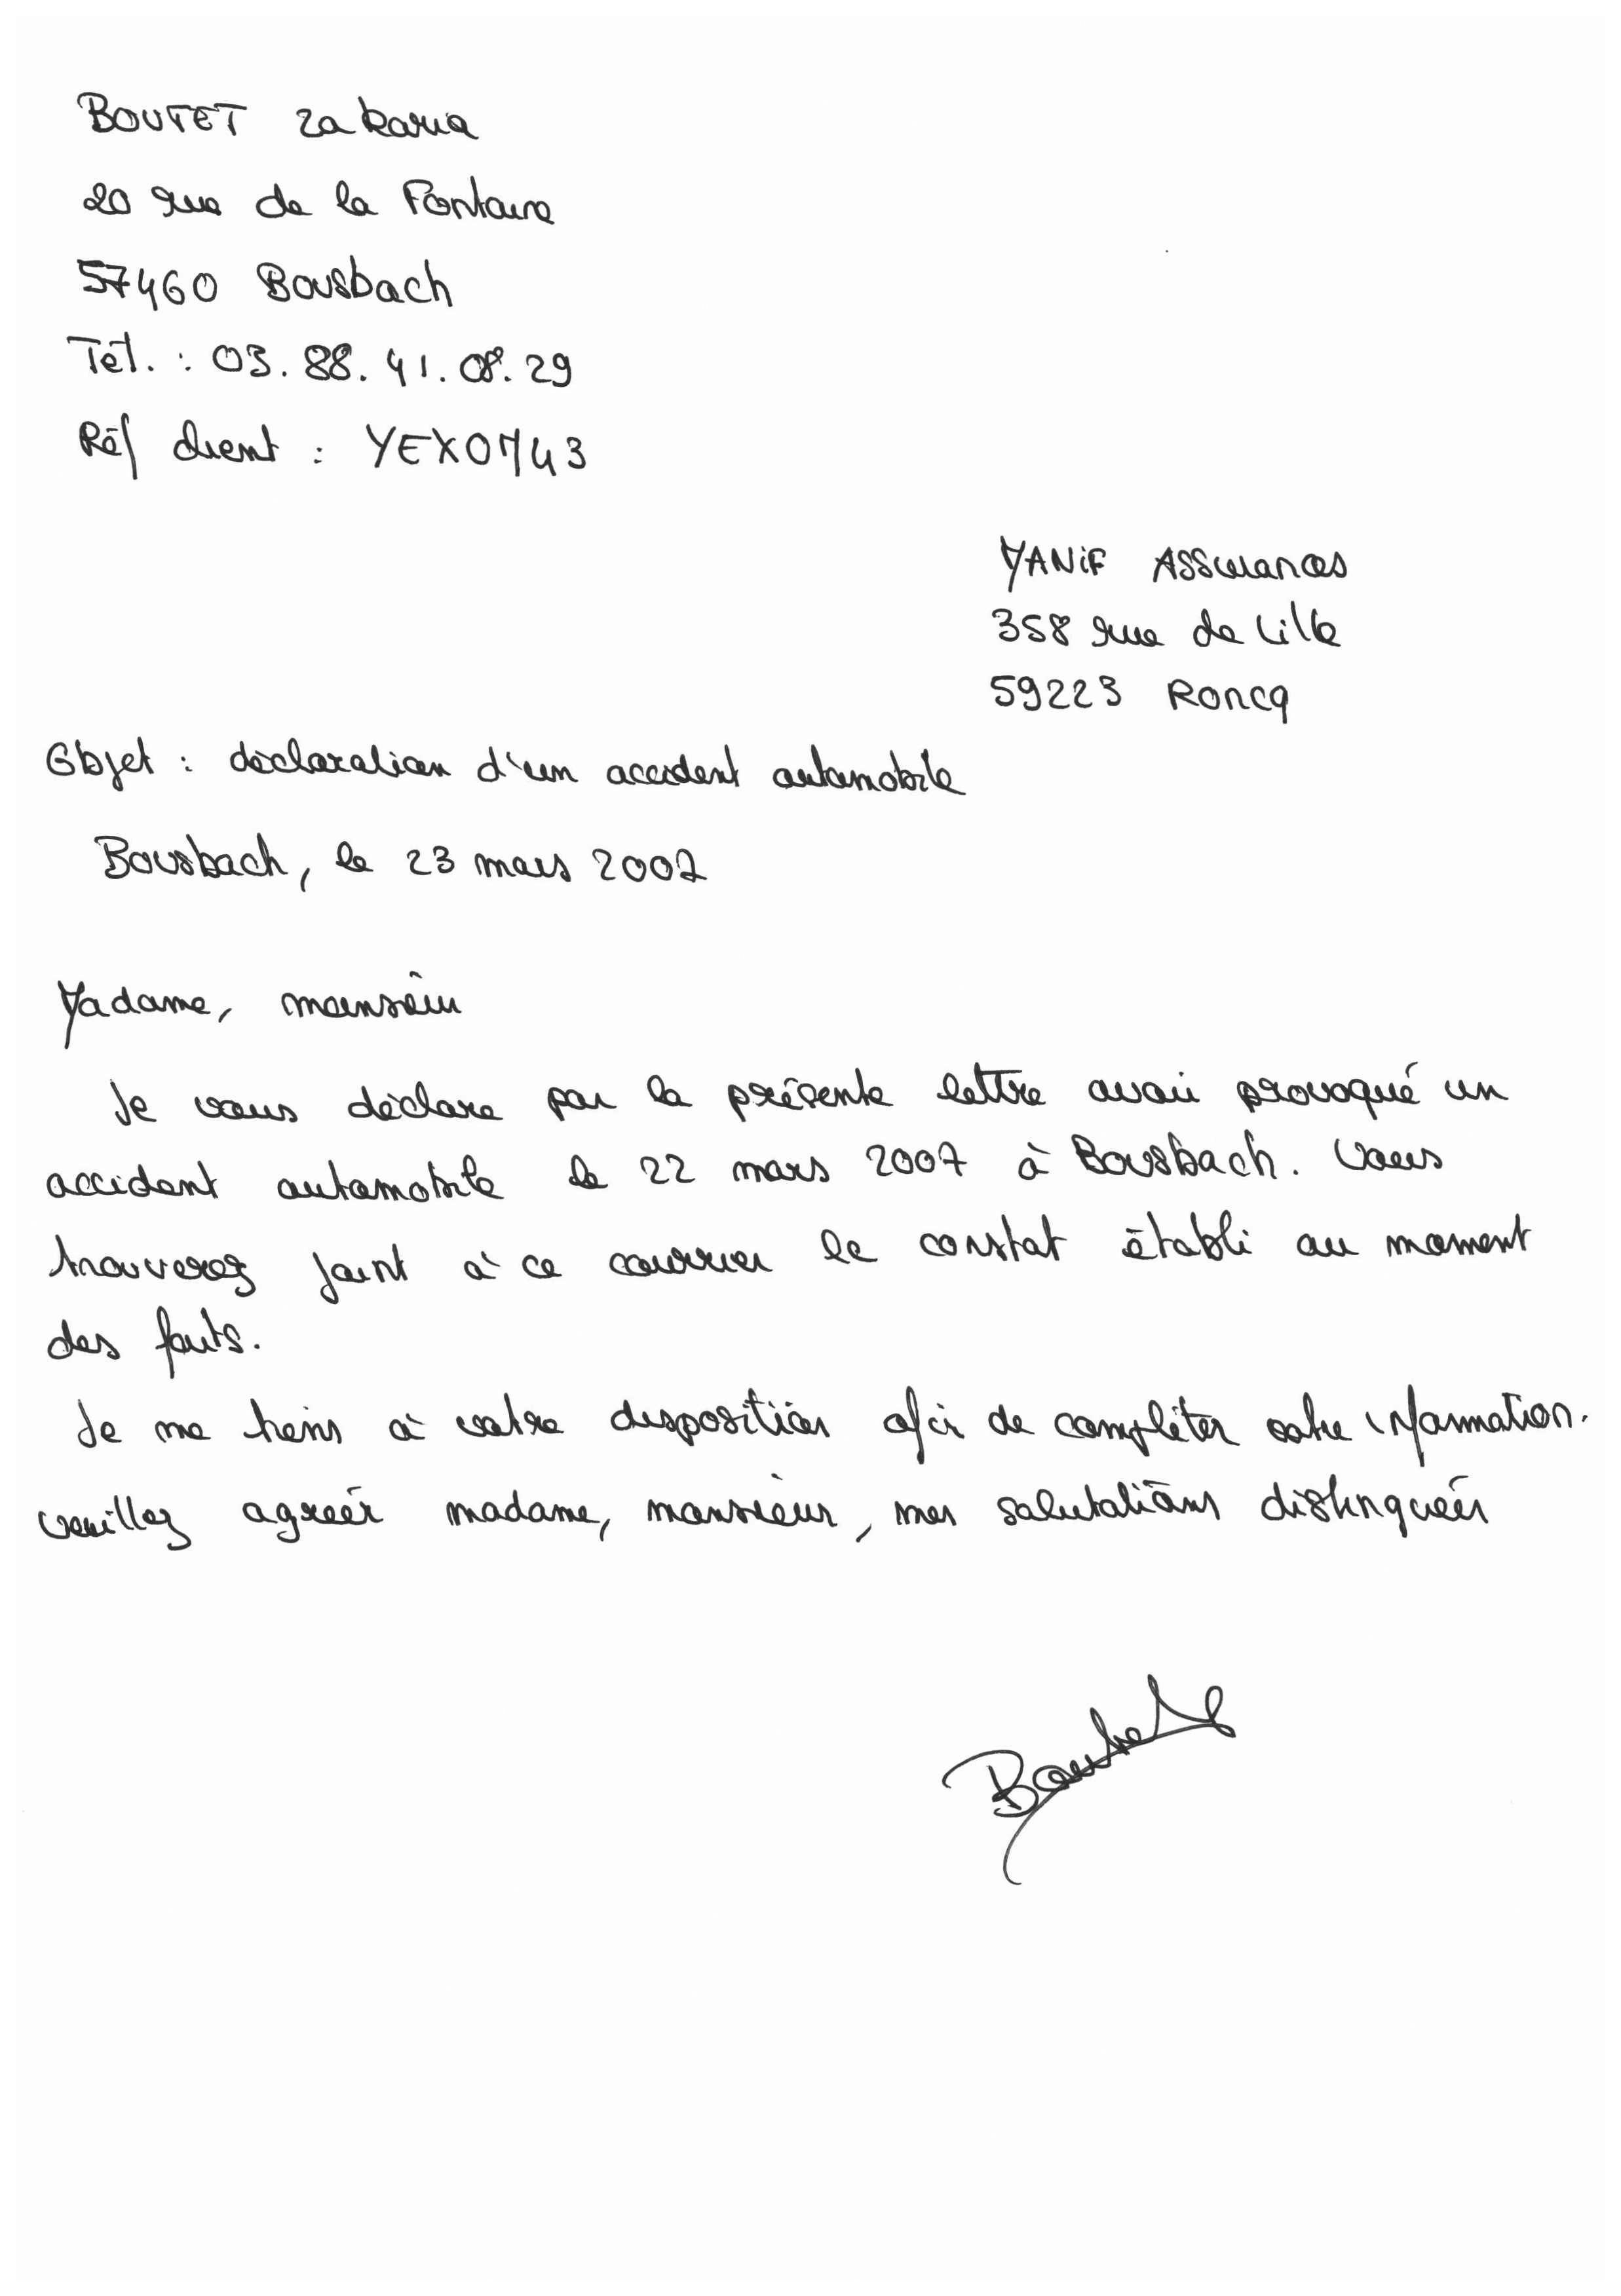 BOUTET Zakaria
20 rue de la Fontaine
57460 Bousbach
Tél. : 03.88.41.08.29
Réf client : YEXOM43
MANiF Assurances
358 rue de Lille
59223 Roncq
Objet : déclaration d'un accident automobile
Bousbach, le 23 mars 2007
Madame, monsieur
Je vous déclare par la présente lettre avoir provoqué un
accident automobile le 22 mars 2007 à Bousbach. Vous
trouverez joint à ce courrier le constat établi au moment
des faits.
Je me tiens à votre disposition afin de compléter votre information.
Veuillez agréer madame, monsieur, mes salutations distinguées
Boutet